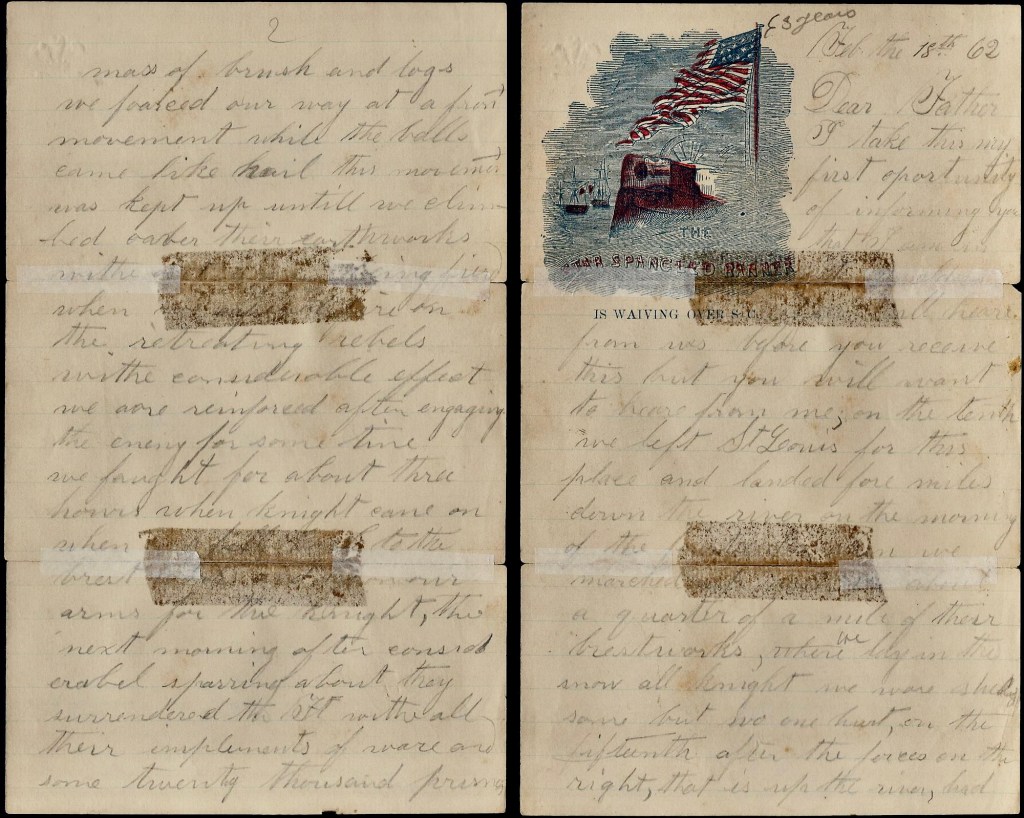 63 years
Feb the 18th 62
Dear Father
I take this my
first oportunity
of informing you
that I am in
THE
STAR SPANGLED BANNER
IS WAIVING OVER S.C.
all heare
from us before you receive
this but you will want
to heare from me, on the tenth
we left St Louis for this
place and landed fore miles
down the river on the morning
of the we
marched about
a quarter of a mile of their
brestworks, where we lay in the
snow all knight we ware shelled
some but no one hurt, on the
fifteenth after the forces on the
right, that is up the river, had
2
mass of brush and logs
we foarced our way at a front
movement while the balls
came like hail this movement
was kept up untill we clim
bed oaver their earthworks
withe
when fire on
the retreating rebels
withe considerable effect
we ware reinforced after engaging
the enemy for some time
we faught for about three
hours when knight came on
when to the
brest on our
arms for the knight, the
next morning after consid
erabel sparring about they
surrendered the Ft withe all
their implements of ware and
some twenty thousand prisnos